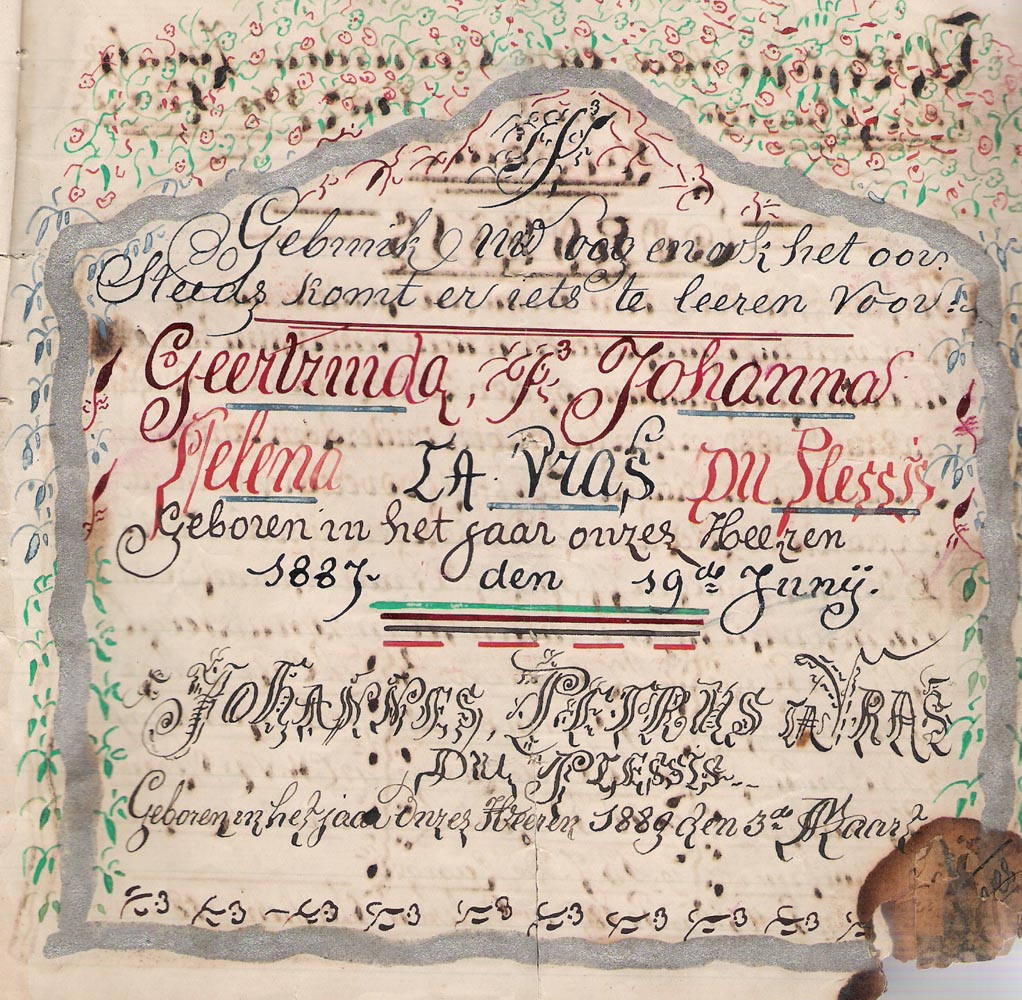 Gebruik Uw oog en ook het oor.
Steeds komt er iets te leeren voor.
Geertruida, Johanna
Helena LA Vras DU Plessis
Geboren in het jaar onzes Heeren
1887. den 19de Junij.
JOHANNES, PETRUS LA VRAS
DU PLESSIS
Geboren in het jaar Onzes Heeren 1889 den 3de Maart